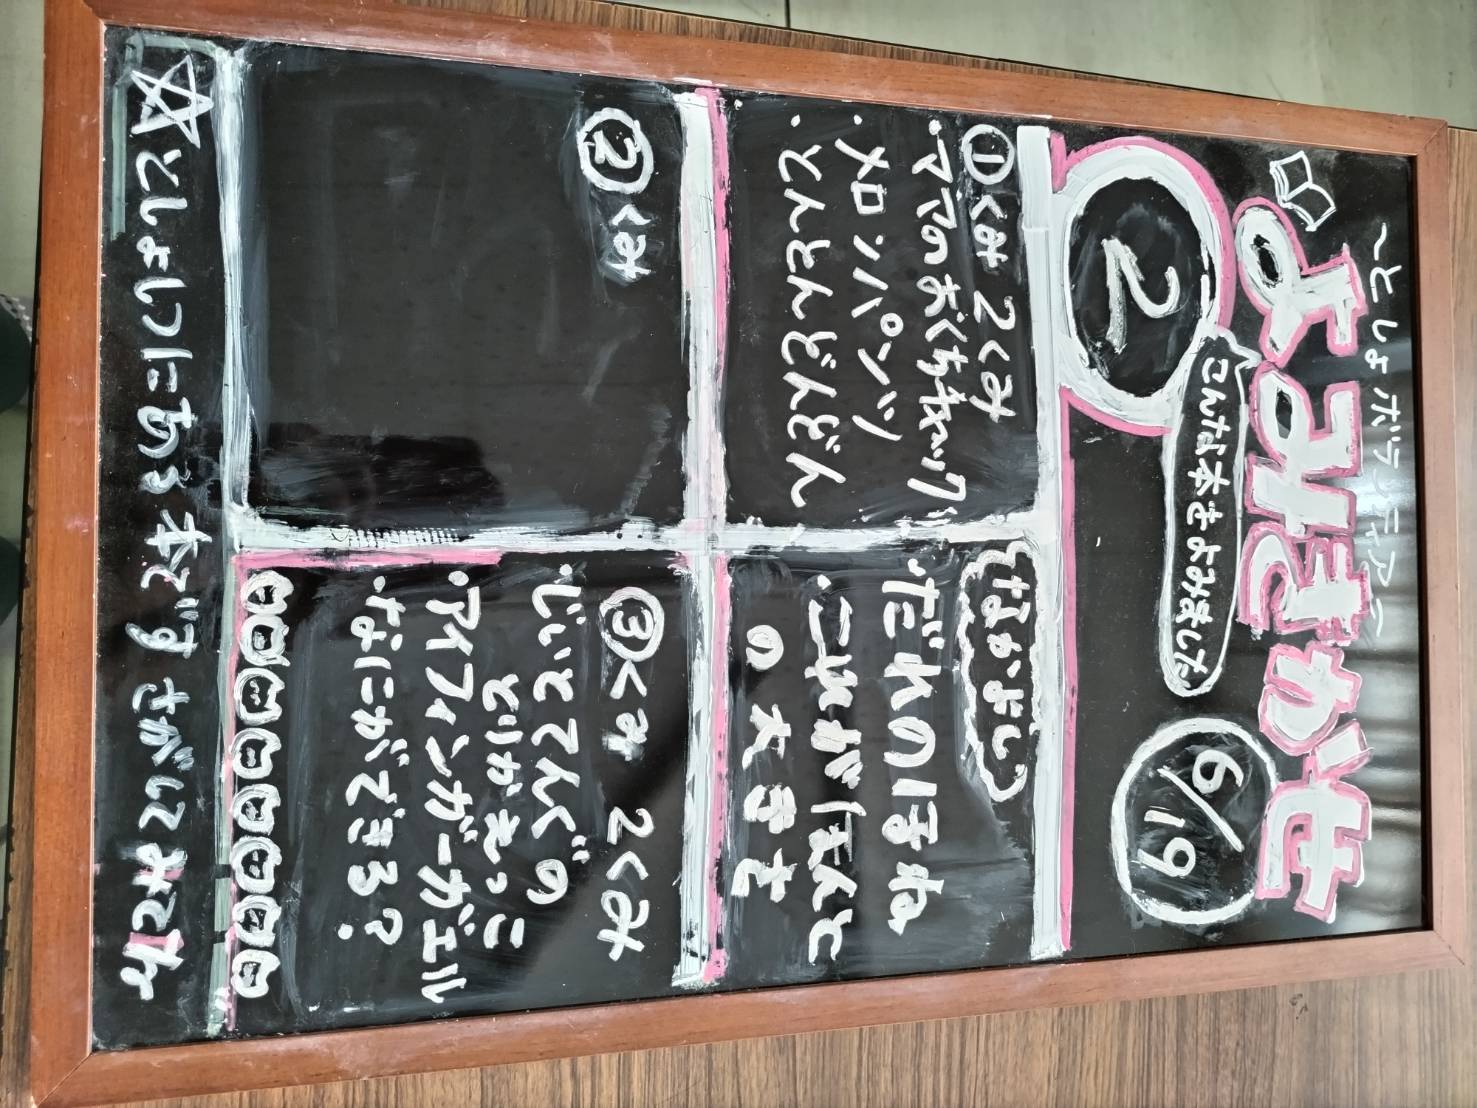 ～としょボランティア～
よみきかせ
2
こんな本をよみました
6/19
①くみ 2くみ
・ママのおくちチャック!!
・メロンパンツ
・とんとんどんどん
なかよし
・だれのほね
・これがほんと
の大きさ
②くみ
③くみ 2くみ
・じいとてんぐの
どりがえっこ
・アイアンガーガエル
・なにができる？
☆としょしつにある本です。さがしてみてネ